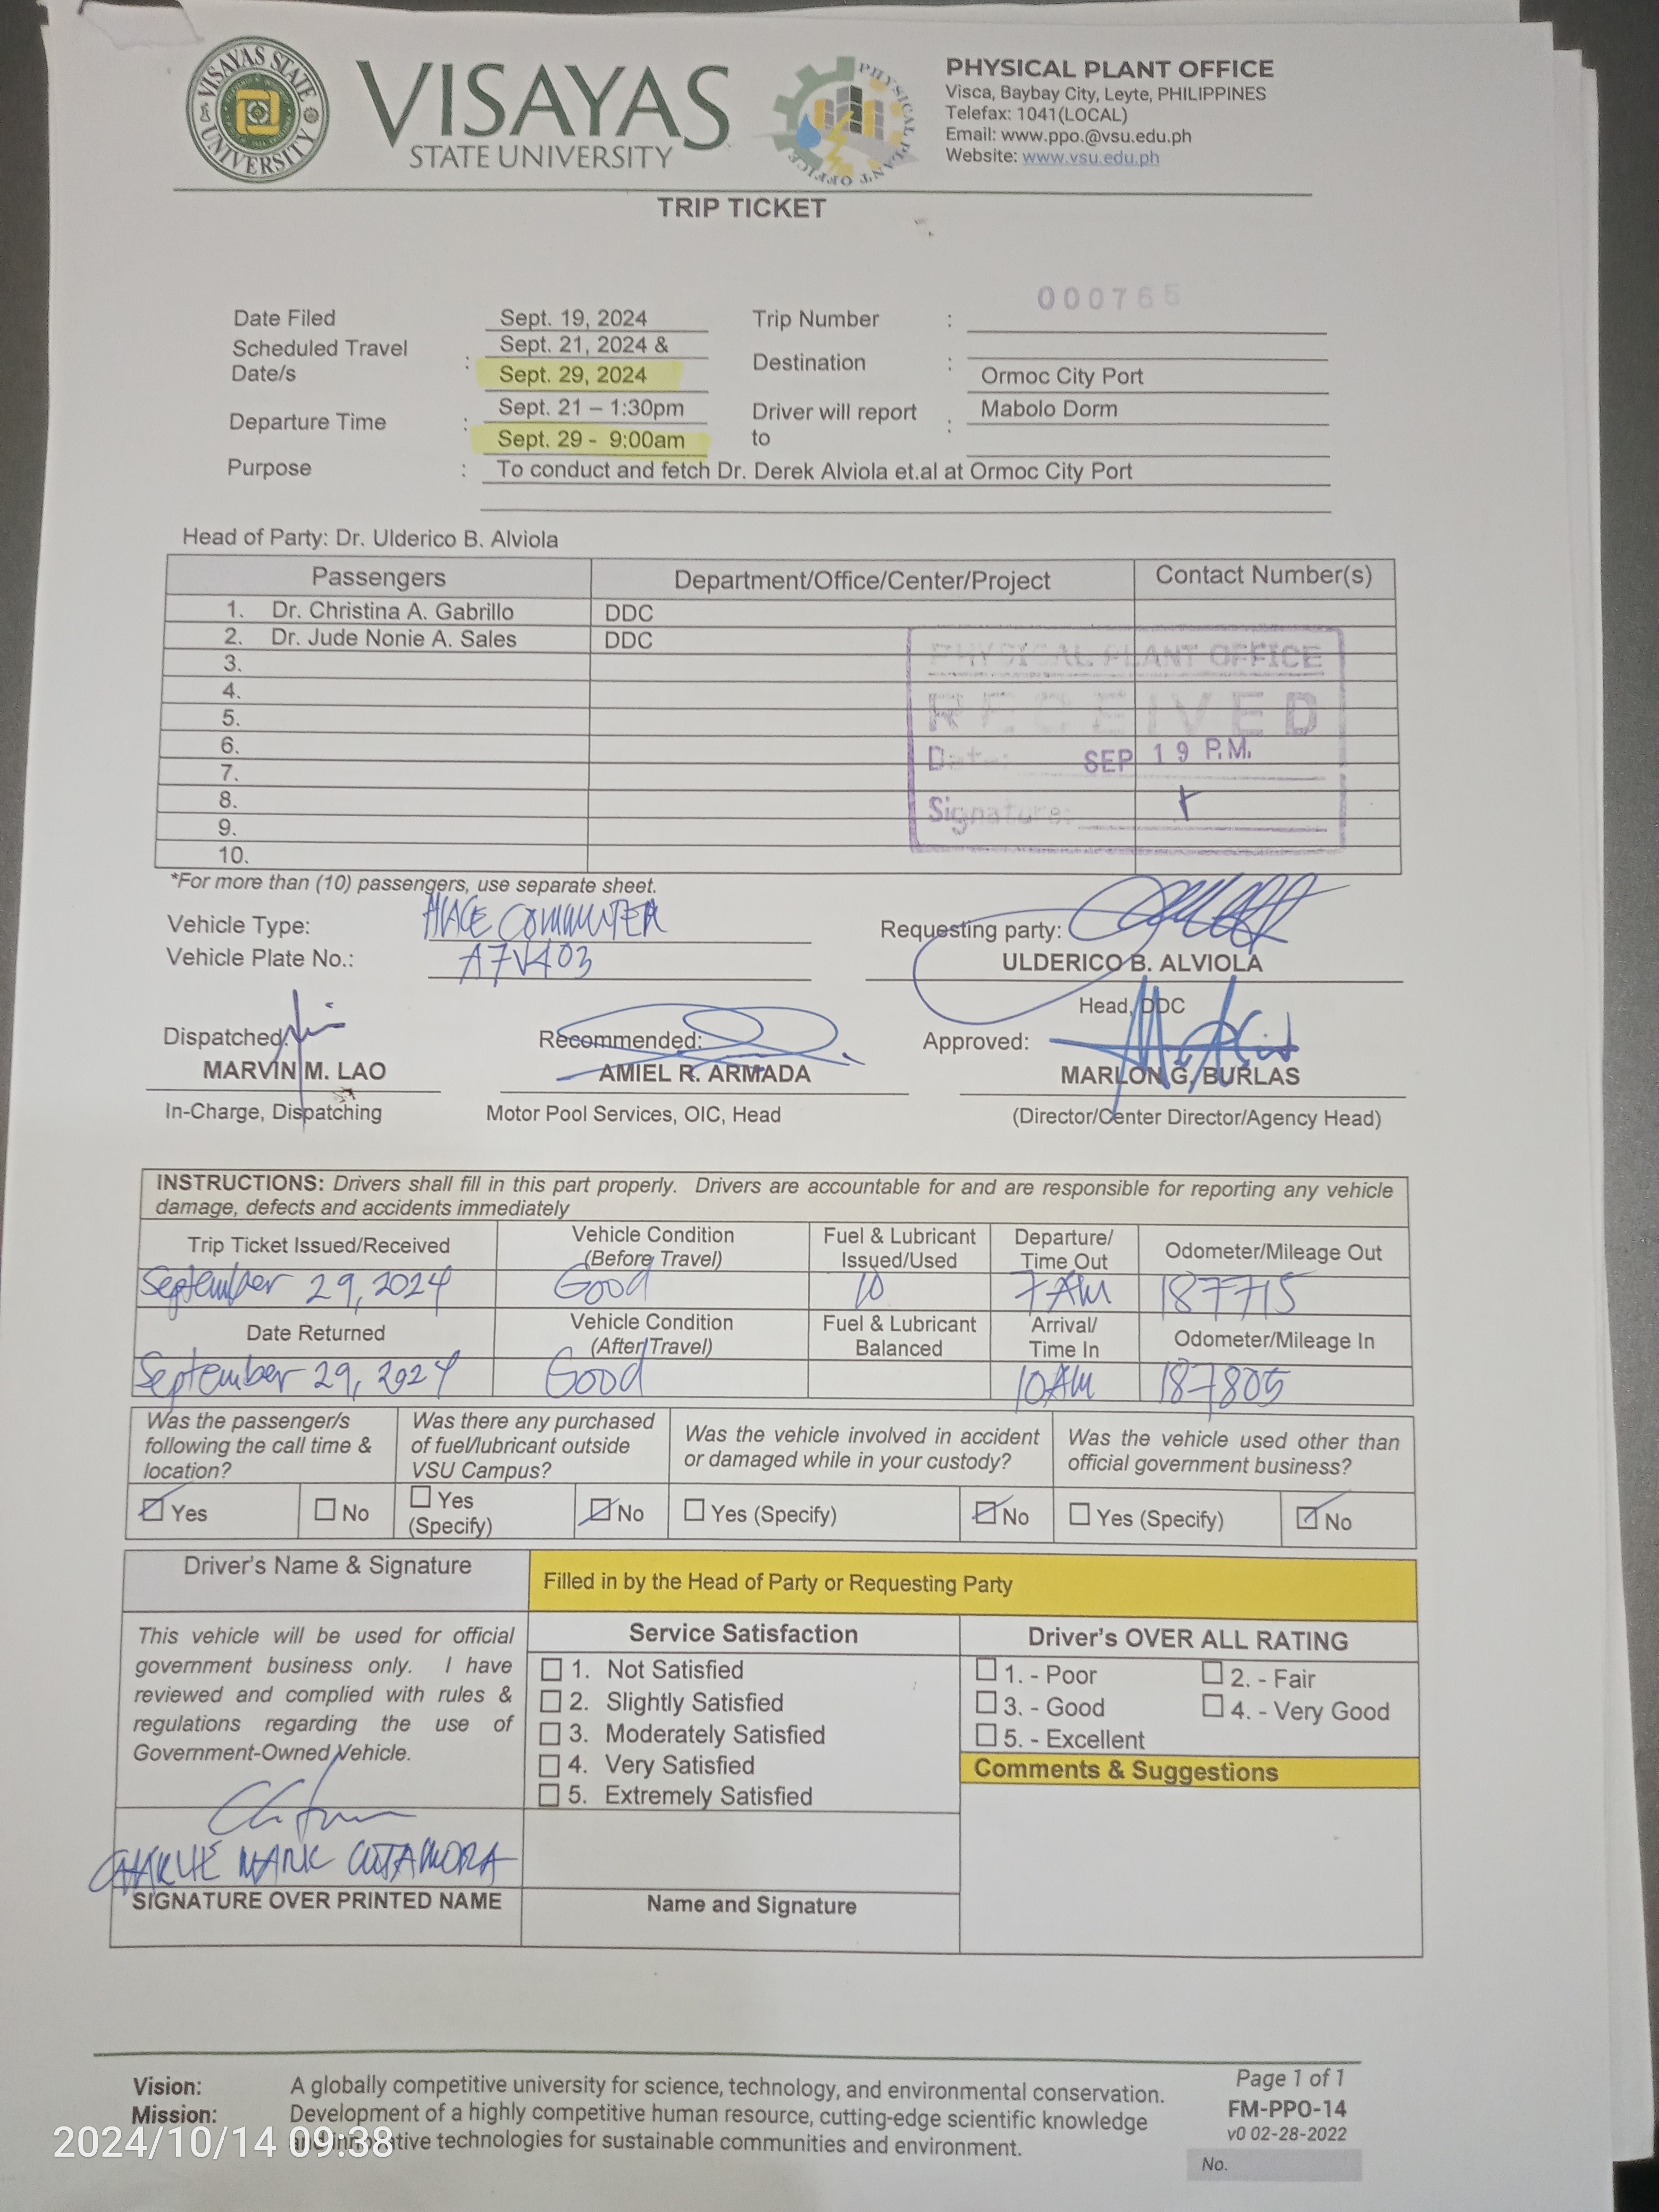 VISAYAS STATE UNIVERSITY
VISAYAS
STATE UNIVERSITY
PHYSICAL PLANT OFFICE
PHYSICAL PLANT OFFICE
Visca, Baybay City, Leyte, PHILIPPINES
Telefax: 1041(LOCAL)
Email: www.ppo.@vsu.edu.ph
Website: www.vsu.edu.ph
TRIP TICKET
000765
Date Filed Sept. 19, 2024 Trip Number :
Scheduled Travel Date/s : Sept. 21, 2024 & Sept. 29, 2024 Destination : Ormoc City Port
Departure Time : Sept. 21 – 1:30pm Sept. 29 - 9:00am Driver will report to : Mabolo Dorm
Purpose : To conduct and fetch Dr. Derek Alviola et.al at Ormoc City Port
Head of Party: Dr. Ulderico B. Alviola
Passengers Department/Office/Center/Project Contact Number(s)
1. Dr. Christina A. Gabrillo DDC
2. Dr. Jude Nonie A. Sales DDC
3.
4.
5.
6.
7.
8.
9.
10.
PHYSICAL PLANT OFFICE
RECEIVED
Date: SEP 19 P.M.
Signature:
*For more than (10) passengers, use separate sheet.
Vehicle Type: HIACE COMMUTER Requesting party:
Vehicle Plate No.: A7V403 ULDERICO B. ALVIOLA
Head, DDC
Dispatched: Recommended: Approved:
MARVIN M. LAO AMIEL R. ARMADA MARLON G. BURLAS
In-Charge, Dispatching Motor Pool Services, OIC, Head (Director/Center Director/Agency Head)
INSTRUCTIONS: Drivers shall fill in this part properly. Drivers are accountable for and are responsible for reporting any vehicle
damage, defects and accidents immediately
Trip Ticket Issued/Received Vehicle Condition (Before Travel) Fuel & Lubricant Issued/Used Departure/ Time Out Odometer/Mileage Out
September 29, 2024 Good 10 7 AM 187715
Date Returned Vehicle Condition (After Travel) Fuel & Lubricant Balanced Arrival/ Time In Odometer/Mileage In
September 29, 2024 Good 10 AM 187805
Was the passenger/s following the call time & location? Was there any purchased of fuel/lubricant outside VSU Campus? Was the vehicle involved in accident or damaged while in your custody? Was the vehicle used other than official government business?
Yes No Yes (Specify) No Yes (Specify) No Yes (Specify) No
Driver's Name & Signature Filled in by the Head of Party or Requesting Party
This vehicle will be used for official
government business only. I have
reviewed and complied with rules &
regulations regarding the use of
Government-Owned Vehicle.
CHARLIE MARK COTAMORA
SIGNATURE OVER PRINTED NAME
Service Satisfaction
1. Not Satisfied
2. Slightly Satisfied
3. Moderately Satisfied
4. Very Satisfied
5. Extremely Satisfied
Name and Signature
Driver's OVER ALL RATING
1. - Poor 2. - Fair
3. - Good 4. - Very Good
5. - Excellent
Comments & Suggestions
Vision: A globally competitive university for science, technology, and environmental conservation.
Mission: Development of a highly competitive human resource, cutting-edge scientific knowledge
and innovative technologies for sustainable communities and environment.
Page 1 of 1
FM-PPO-14
v0 02-28-2022
No.
2024/10/14 09:38